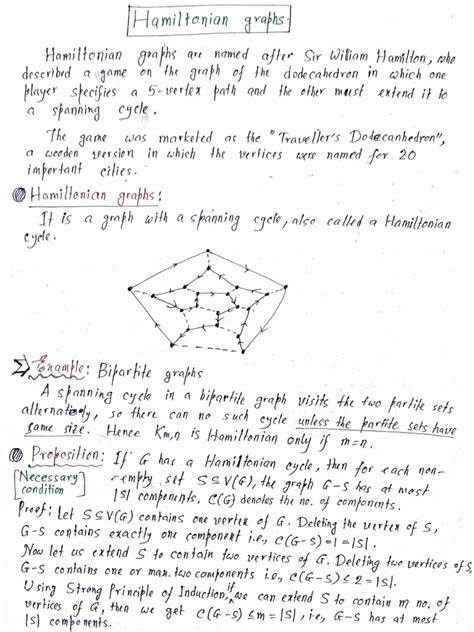 Hamiltonian graphs.
Hamiltonian graphs are named after Sir William Hamilton, who
described a game on the graph of the dodecahedron in which one
player specifies a 5-vertex path and the other must extend it to
a spanning cycle.
The game was marketed as the "Traveller's Dodecanhedron",
a wooden version in which the vertices were named for 20
important cities.
Hamiltonian graphs:
It is a graph with a spanning cycle, also called a Hamiltonian
cycle.
Example: Bipartite graphs
A spanning cycle in a bipartite graph visits the two partite sets
alternately, so there can no such cycle unless the partite sets have
same size. Hence Km,n is Hamiltonian only if m=n.
Proposition: If G has a Hamiltonian cycle, then for each non-
[Necessary condition] -empty set S⊆V(G), the graph G-S has at most
|S| components. C(G) denotes the no. of components.
Proof: Let S⊆V(G) contains one vertex of G. Deleting the vertex of S,
G-S contains exactly one component i.e, C(G-S)=1=|S|.
Now let us extend S to contain two vertices of G. Deleting two vertices of S,
G-S contains one or max. two components i.e, C(G-S)≤2=|S|.
Using Strong Principle of Induction, if we can extend S to contain m no. of
vertices of G, then we get C(G-S)≤m=|S|, i.e, G-S has at most
|S| components.